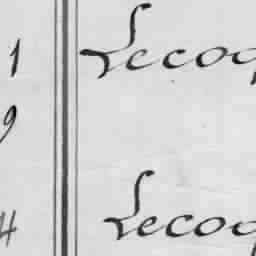 1 Lecoq
9
4 Lecoq